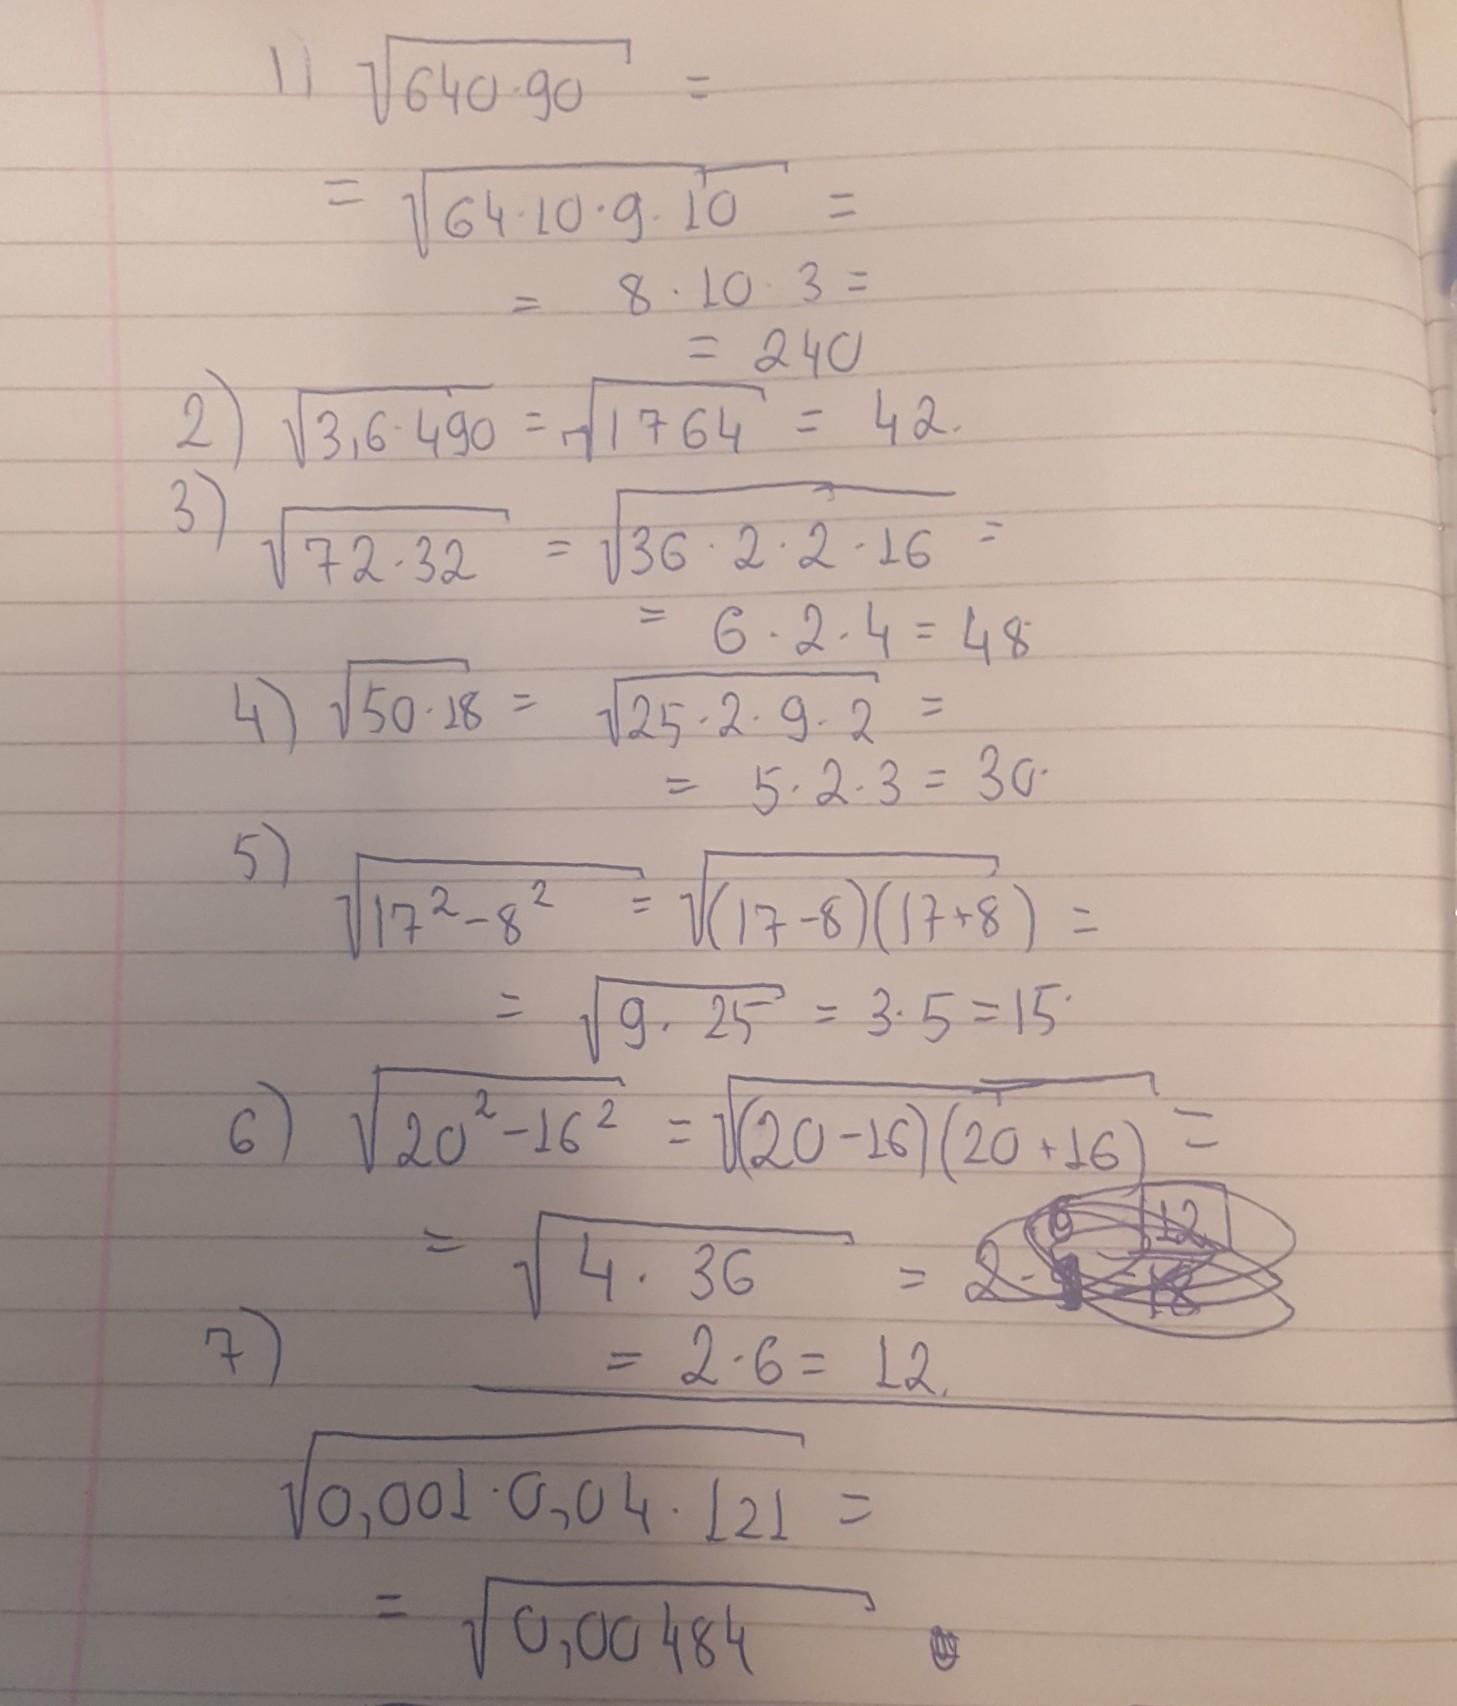 1) √640·90 =
= √64·10·9·10 =
= 8·10·3 =
= 240
2) √3,6·490 = √1764 = 42.
3) √72·32 = √36·2·2·16 =
= 6·2·4 = 48
4) √50·18 = √25·2·9·2 =
= 5·2·3 = 30.
5) √17²-8² = √(17-8)(17+8) =
= √9·25 = 3·5 = 15.
6) √20²-16² = √(20-16)(20+16) =
= √4·36 = 2·
= 2·6 = 12.
7)
√0,001·0,04·121 =
= √0,00484